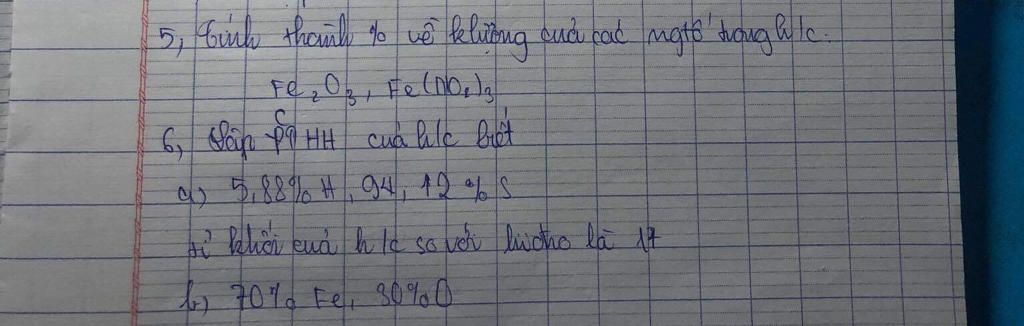 5, Tính thành % về klượng của các ngtố trong h/c.
Fe₂O₃, Fe(NO₂)₃
6, Lập CTHH của h/c biết
a) 5,88% H, 94,12% S
tỉ khối của h/c so với hiđro là 17
b) 70% Fe, 30% O